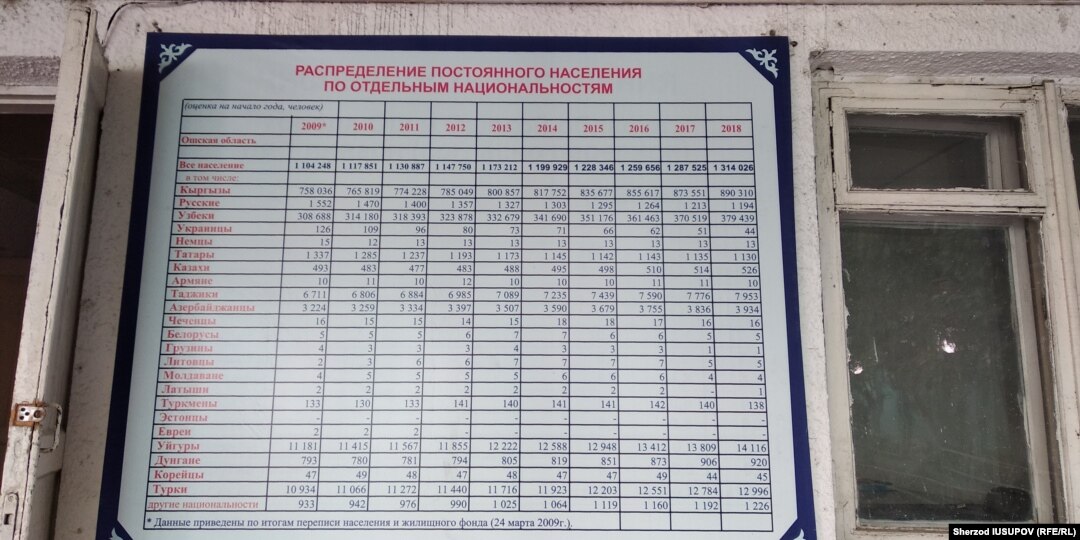 РАСПРЕДЕЛЕНИЕ ПОСТОЯННОГО НАСЕЛЕНИЯ
ПО ОТДЕЛЬНЫМ НАЦИОНАЛЬНОСТЯМ
(оценка на начало года, человек)
2009* 2010 2011 2012 2013 2014 2015 2016 2017 2018
Ошская область
Все население 1 104 248 1 117 851 1 130 887 1 147 750 1 173 212 1 199 929 1 228 346 1 259 656 1 287 525 1 314 026
в том числе:
Кыргызы 758 036 765 819 774 228 785 049 800 857 817 752 835 677 855 617 873 551 890 310
Русские 1 552 1 470 1 400 1 357 1 327 1 303 1 295 1 264 1 213 1 194
Узбеки 308 688 314 180 318 393 323 878 332 679 341 690 351 176 361 463 370 519 379 439
Украинцы 126 109 96 80 73 71 66 62 51 44
Немцы 15 12 13 13 13 13 13 13 13 13
Татары 1 337 1 285 1 237 1 193 1 173 1 145 1 142 1 143 1 135 1 130
Казахи 493 483 477 483 488 495 498 510 514 526
Армяне 10 11 10 12 10 10 10 11 11 10
Таджики 6 711 6 806 6 884 6 985 7 089 7 235 7 439 7 590 7 776 7 953
Азербайджанцы 3 224 3 259 3 334 3 397 3 507 3 590 3 679 3 755 3 836 3 934
Чеченцы 16 15 15 14 15 18 18 17 16 16
Белорусы 5 5 5 6 7 7 6 6 5 5
Грузины 4 3 3 3 4 3 3 3 1 1
Литовцы 2 3 6 6 7 7 7 7 5 5
Молдаване 4 5 5 5 5 6 6 6 4 4
Латыши 2 2 2 2 2 2 2 2 - 1
Туркмены 133 130 133 141 140 141 141 142 140 138
Эстонцы - - - - - - - - - -
Евреи 2 2 2 - - - - - - -
Уйгуры 11 181 11 415 11 567 11 855 12 222 12 588 12 948 13 412 13 809 14 116
Дунгане 793 780 781 794 805 819 851 873 906 920
Корейцы 47 49 48 48 47 47 47 49 44 45
Турки 10 934 11 066 11 272 11 440 11 716 11 923 12 203 12 551 12 784 12 996
другие национальности 933 942 976 990 1 025 1 064 1 119 1 160 1 192 1 226
* Данные приведены по итогам переписи населения и жилищного фонда (24 марта 2009г.).
Sherzod IUSUPOV (RFE/RL)